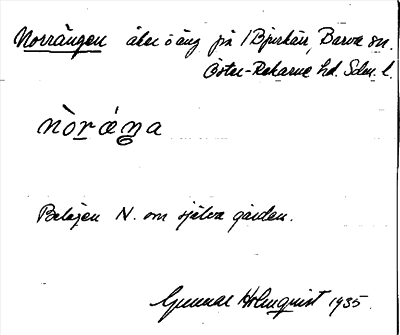 Norrängen åker o äng på 1 Bjurkärr, Barva sn.
Öster-Rekarne hd. Södm. l.
nòráŋa
Belägen N. om själva gården.
Gunnar Holmquist 1935.